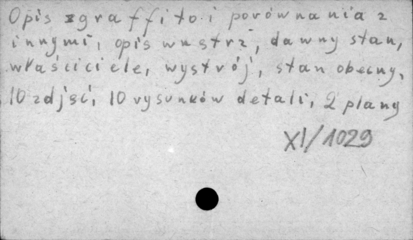 Opis zgraffito i porównania z
innymi, opis wnętrz, dawny stan,
właściciele, wystrój, stan obecny,
10 zdjęć, 10 rysunków detali, 2 plany
XI/1029